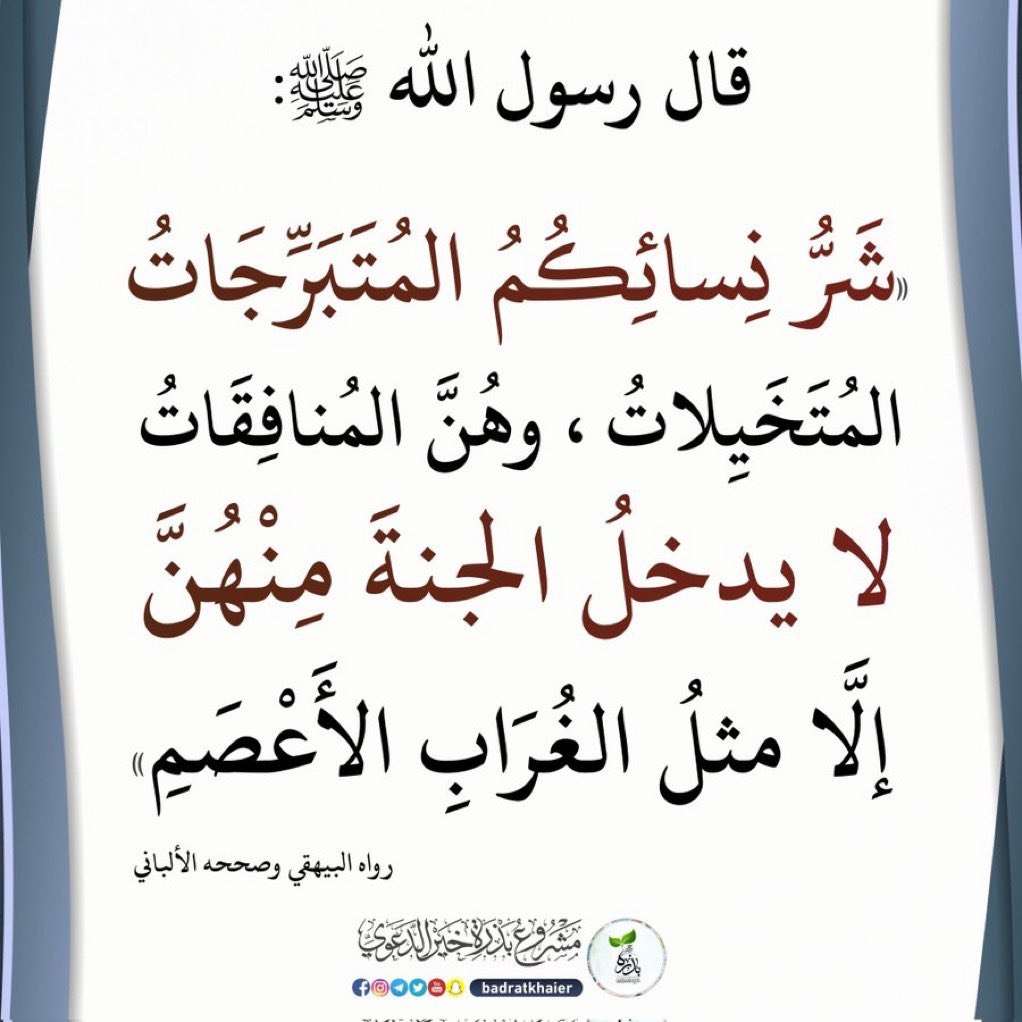 قال رسول الله ﷺ:
«شَرُّ نِسائِكُمُ المُتَبَرِّجَاتُ
المُتَخَيِلاتُ ، وهُنَّ المُنافِقَاتُ
لا يدخلُ الجنةَ مِنْهُنَّ
إلَّا مثلُ الغُرَابِ الأَعْصَمِ»
رواه البيهقي وصححه الألباني
مَشْرُوعُ بَذْرَةُ خَيْرِ الدَّعَوِيّ
بذرة
badratkhaier